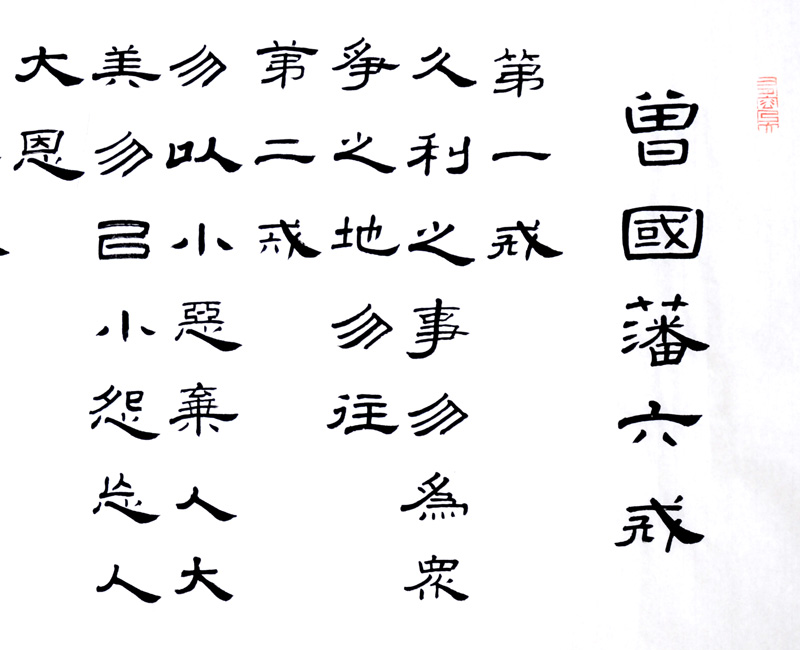 曾國藩六戒
第一戒
久利之事勿爲眾
爭之地勿往
苐二戒
勿以小惡棄人大
美勿㠯小怨忘人
大恩